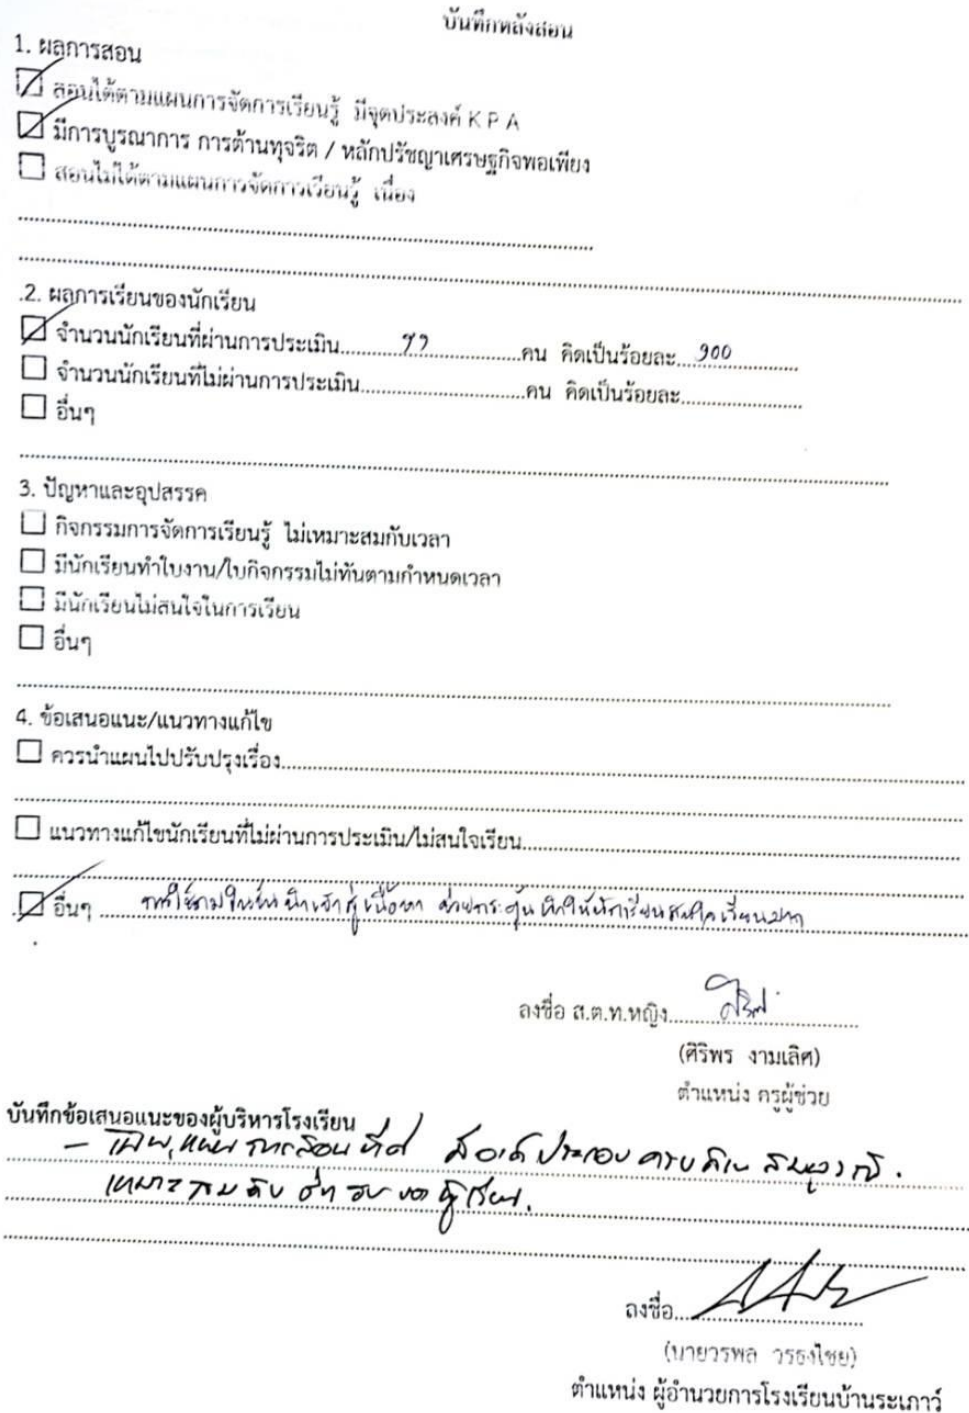 บันทึกหลังสอน
1. ผลการสอน
สอนได้ตามแผนการจัดการเรียนรู้ มีจุดประสงค์ K P A
มีการบูรณาการ การต้านทุจริต / หลักปรัชญาเศรษฐกิจพอเพียง
สอนไม่ได้ตามแผนการจัดการเรียนรู้ เนื่อง
.2. ผลการเรียนของนักเรียน
จำนวนนักเรียนที่ผ่านการประเมิน...............คน คิดเป็นร้อยละ...๑๐๐
จำนวนนักเรียนที่ไม่ผ่านการประเมิน...............คน คิดเป็นร้อยละ...............
อื่นๆ
3. ปัญหาและอุปสรรค
กิจกรรมการจัดการเรียนรู้ ไม่เหมาะสมกับเวลา
มีนักเรียนทำใบงาน/ใบกิจกรรมไม่ทันตามกำหนดเวลา
มีนักเรียนไม่สนใจในการเรียน
อื่นๆ
4. ข้อเสนอแนะ/แนวทางแก้ไข
ควรนำแผนไปปรับปรุงเรื่อง...............
แนวทางแก้ไขนักเรียนที่ไม่ผ่านการประเมิน/ไม่สนใจเรียน...............
อื่นๆ ... นำเข้าสู่เนื้อหา ช่วยกระตุ้น ทำให้นักเรียนสนใจเรียนมาก
ลงชื่อ ส.ต.ท.หญิง...............
(ศิริพร งามเลิศ)
ตำแหน่ง ครูผู้ช่วย
บันทึกข้อเสนอแนะของผู้บริหารโรงเรียน
- เป็นแผนการสอนที่ดี มีองค์ประกอบครบถ้วน สมบูรณ์.
เหมาะสมกับ ผู้เรียน.
ลงชื่อ...............
(นายวรพล วรธงไชย)
ตำแหน่ง ผู้อำนวยการโรงเรียนบ้านระเภาว์